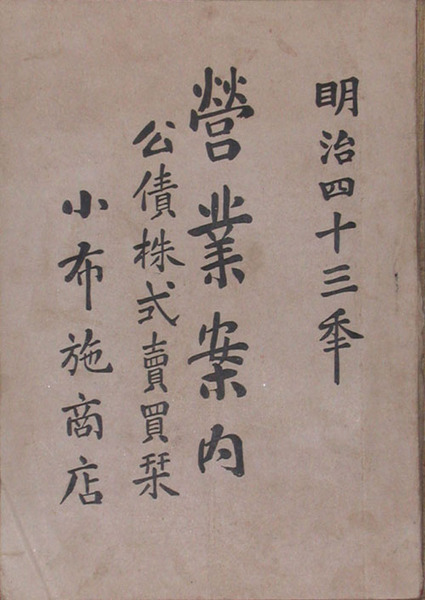 明治四十三年
營業案内
公債株式賣買栞
小布施商店